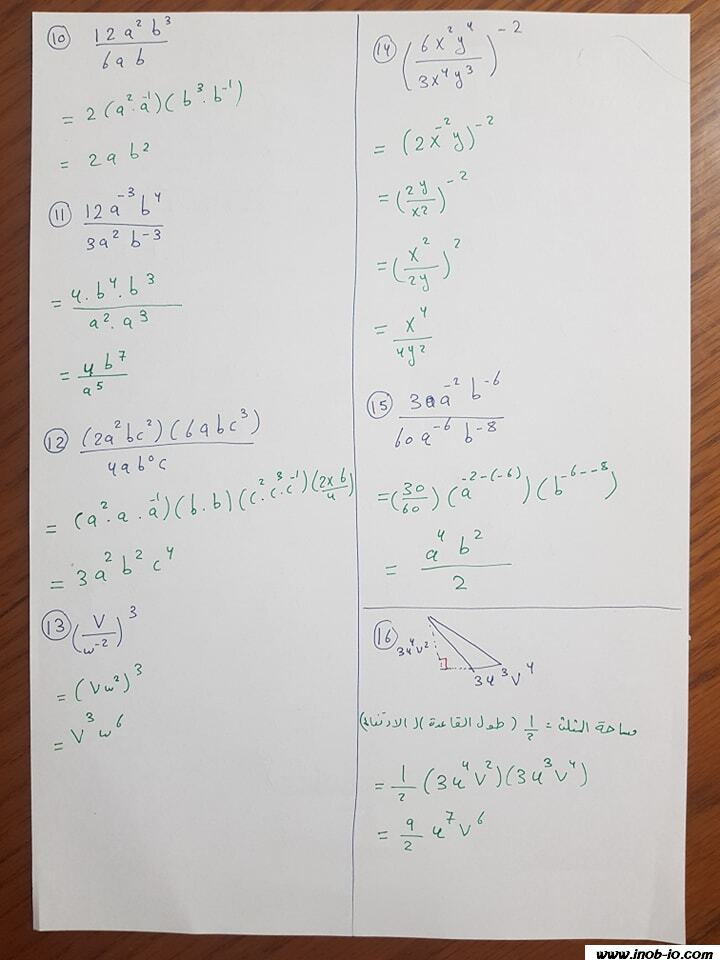 10 12a²b³ / 6ab
= 2(a²·a⁻¹)(b³·b⁻¹)
= 2ab²
11 12a⁻³b⁴ / 3a²b⁻³
= 4·b⁴·b³ / a²·a³
= 4b⁷ / a⁵
12 (2a²bc²)(6abc³) / 4ab⁰c
= (a²·a·a⁻¹)(b·b)(c²·c³·c⁻¹)(2×6/4)
= 3a²b²c⁴
13 (V/w⁻²)³
= (Vw²)³
= V³w⁶
14 (6x²y⁴ / 3x⁴y³)⁻²
= (2x⁻²y)⁻²
= (2y/x²)⁻²
= (x²/2y)²
= x⁴ / 4y²
15 30a⁻²b⁻⁶ / 60a⁻⁶b⁻⁸
= (30/60)(a⁻²⁻⁽⁻⁶⁾)(b⁻⁶⁻⁻⁸)
= a⁴b² / 2
16
3u⁴v²
3u³v⁴
مساحة المثلث = 1/2 (طول القاعدة)(الارتفاع)
= 1/2 (3u⁴v²)(3u³v⁴)
= 9/2 u⁷v⁶
www.inob-io.com